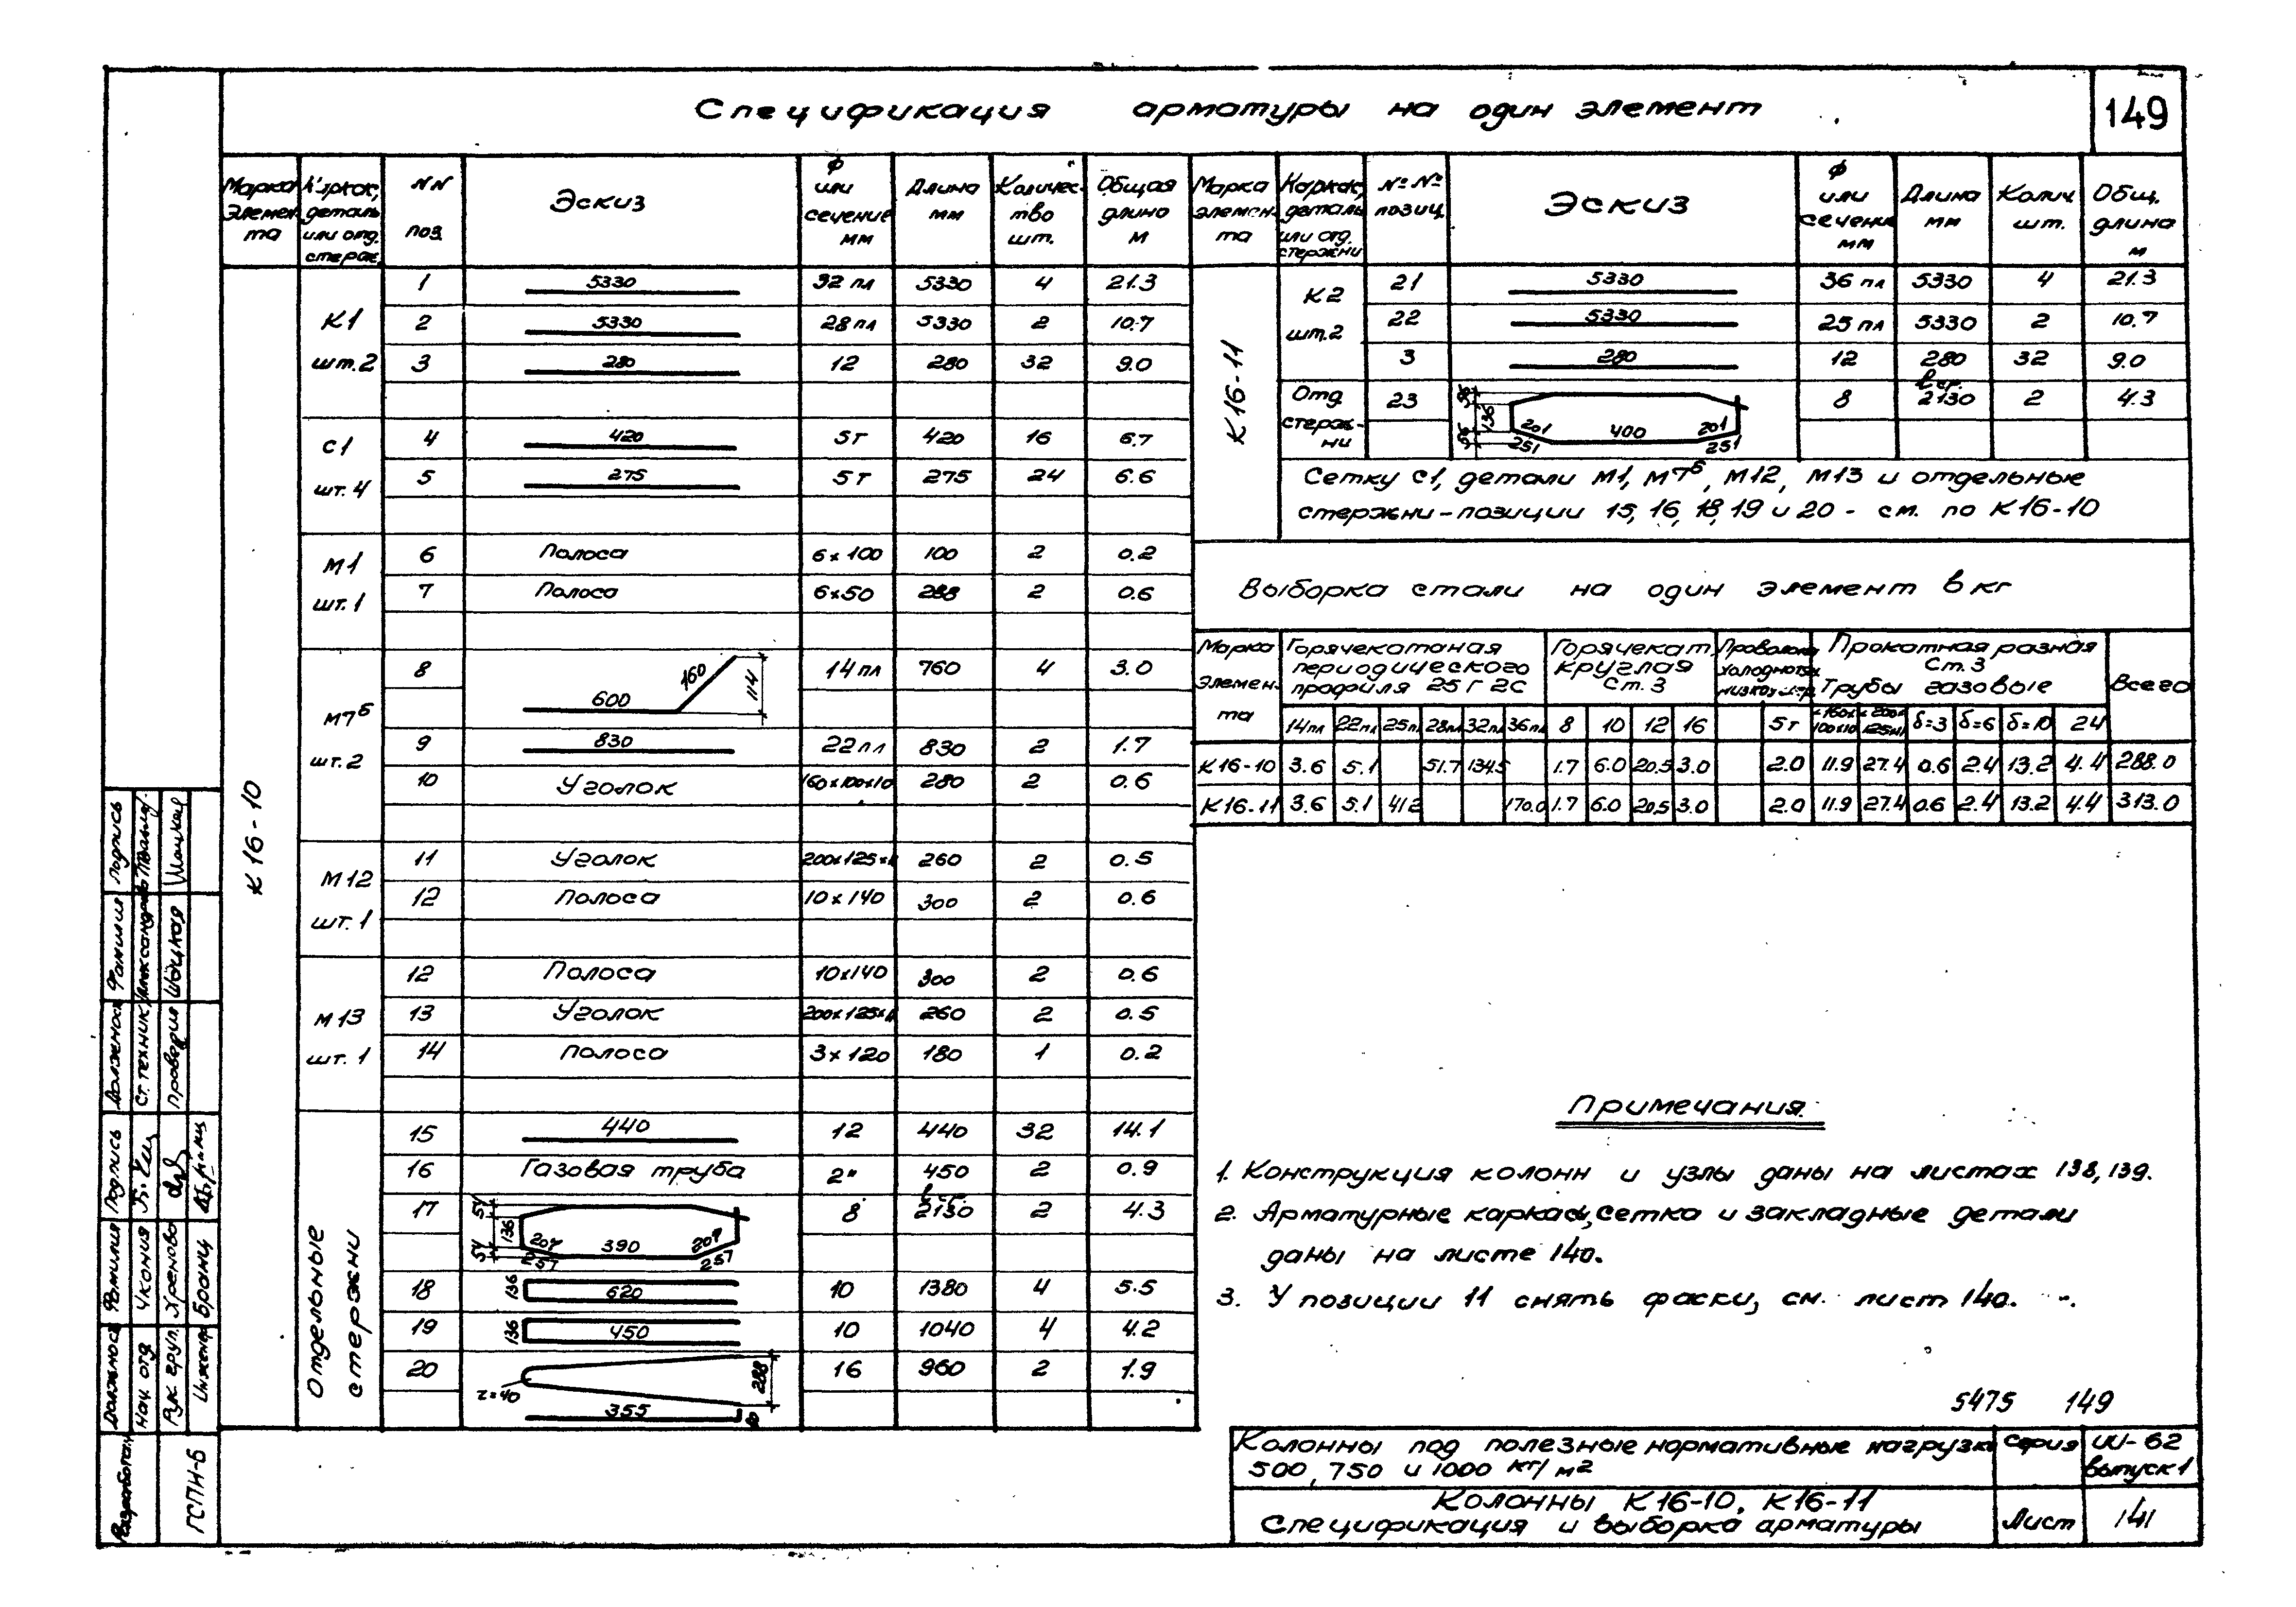 Спецификация арматуры на один элемент
149
Марка элемента | Каркас, деталь или отд. стерж. | NN поз. | Эскиз | ф или сечение мм | Длина мм | Количество шт. | Общая длина м
К16-10
К1 шт.2
1 | 5330 | 32 пл | 5330 | 4 | 21.3
2 | 5330 | 28 пл | 5330 | 2 | 10.7
3 | 280 | 12 | 280 | 32 | 9.0
С1 шт. 4
4 | 420 | 5т | 420 | 16 | 6.7
5 | 275 | 5т | 275 | 24 | 6.6
М1 шт. 1
6 | Полоса | 6х100 | 100 | 2 | 0.2
7 | Полоса | 6х50 | 288 | 2 | 0.6
М7б шт. 2
8 | 600 160 114 | 14 пл | 760 | 4 | 3.0
9 | 830 | 22 пл | 830 | 2 | 1.7
10 | Уголок | 160х100х10 | 280 | 2 | 0.6
М12 шт. 1
11 | Уголок | 200х125х11 | 260 | 2 | 0.5
12 | Полоса | 10х140 | 300 | 2 | 0.6
М13 шт. 1
12 | Полоса | 10х140 | 300 | 2 | 0.6
13 | Уголок | 200х125х11 | 260 | 2 | 0.5
14 | Полоса | 3х120 | 180 | 1 | 0.2
Отдельные стержни
15 | 440 | 12 | 440 | 32 | 14.1
16 | Газовая труба | 2" | 450 | 2 | 0.9
17 | 54 136 54 207 390 207 257 257 | 8 | lср. 2130 | 2 | 4.3
18 | 136 620 | 10 | 1380 | 4 | 5.5
19 | 136 450 | 10 | 1040 | 4 | 4.2
20 | r=40 288 355 | 16 | 960 | 2 | 1.9
Марка элемента | Каркас, деталь или отд. стержни | №№ позиц. | Эскиз | ф или сечение мм | Длина мм | Колич. шт. | Общ. длина м
К16-11
К2 шт.2
21 | 5330 | 36 пл | 5330 | 4 | 21.3
22 | 5330 | 25 пл | 5330 | 2 | 10.7
3 | 280 | 12 | 280 | 32 | 9.0
Отд. стержни
23 | 56 136 56 201 400 201 251 251 | 8 | lср. 2130 | 2 | 4.3
Сетку С1, детали М1, М7б, М12, М13 и отдельные
стержни - позиции 15, 16, 18, 19 и 20 - см. по К16-10
Выборка стали на один элемент в кг
Марка элемента | Горячекатаная периодического профиля 25Г2С | Горячекат. круглая Ст.3 | Проволока холоднотян. | Прокатная разная Ст.3 Трубы газовые | Всего
14пл | 22пл | 25пл | 28пл | 32пл | 36пл | 8 | 10 | 12 | 16 | 5т | 160х100х10 | 200х125х11 | δ=3 | δ=6 | δ=10 | 24
К16-10 | 3.6 | 5.1 | 51.7 | 134.5 | 1.7 | 6.0 | 20.5 | 3.0 | 2.0 | 11.9 | 27.4 | 0.6 | 2.4 | 13.2 | 4.4 | 288.0
К16-11 | 3.6 | 5.1 | 41.2 | 170.0 | 1.7 | 6.0 | 20.5 | 3.0 | 2.0 | 11.9 | 27.4 | 0.6 | 2.4 | 13.2 | 4.4 | 313.0
Примечания.
1. Конструкция колонн и узлы даны на листах 138, 139.
2. Арматурные каркасы, сетка и закладные детали
даны на листе 140.
3. У позиции 11 снять фаски, см. лист 140.
5475 149
Колонны под полезные нормативные нагрузки
500, 750 и 1000 кг/м2
Серия ИИ-62
выпуск 1
Колонны К16-10, К16-11
Спецификация и выборка арматуры
Лист 141
Должность Фамилия Подпись
Ст. техник
Проверил Шацкая
Должность Фамилия Подпись
Нач. отд. Чкония
Рук. груп. Хренова
Инженер Бранц
Разработан ГСПН-6